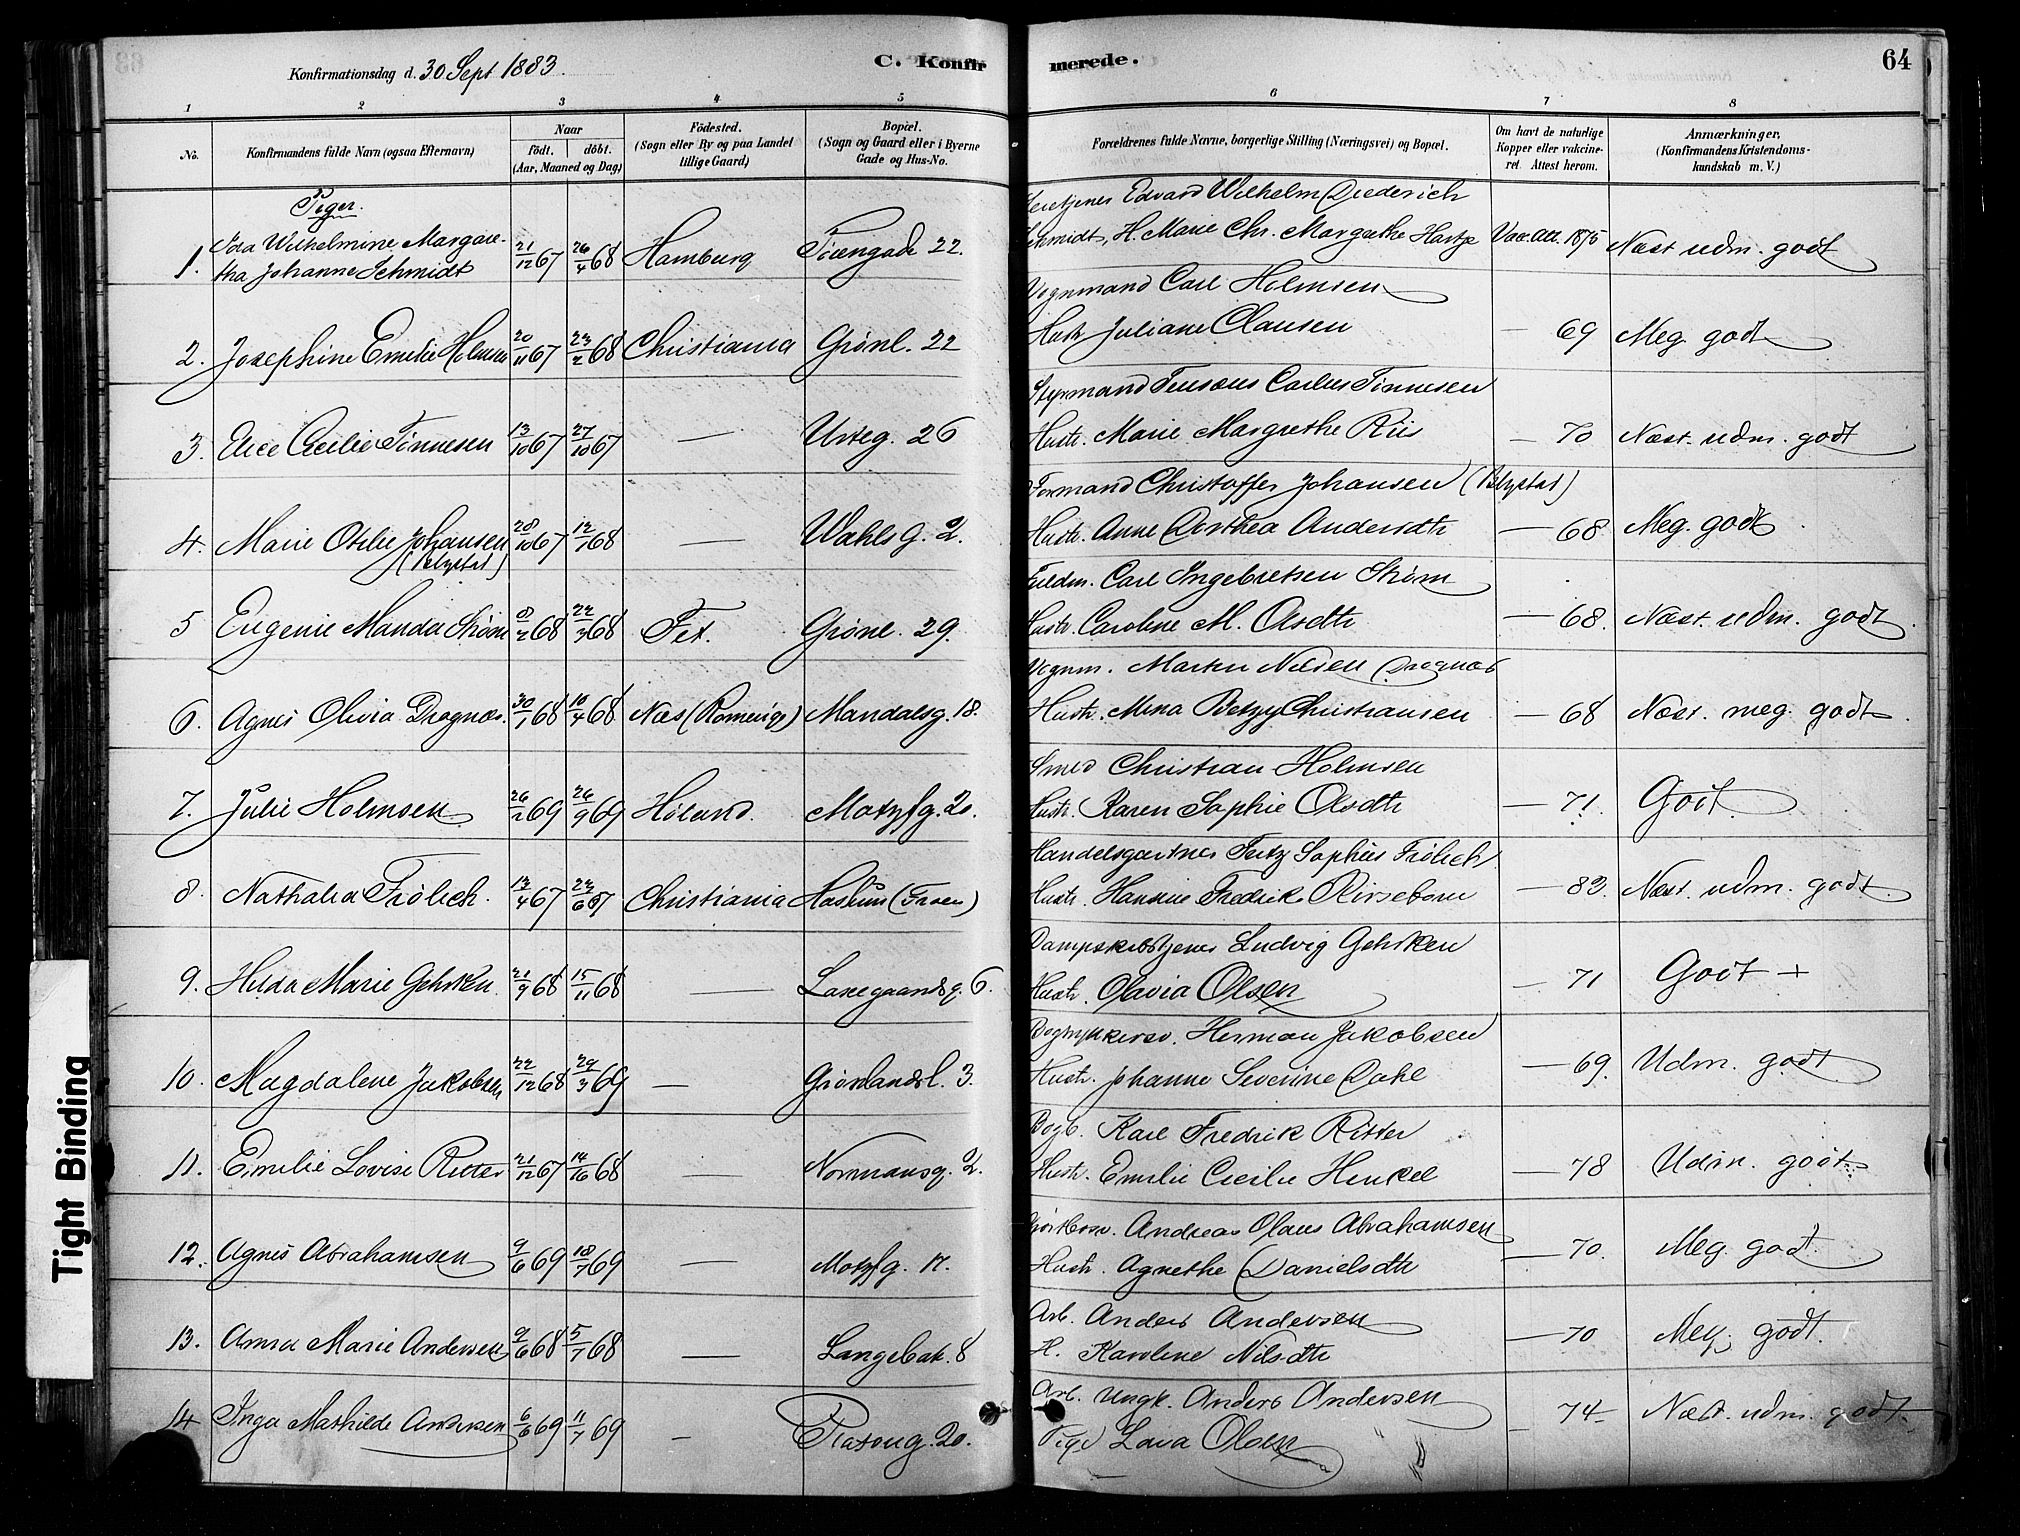 Konfirmationsdag d. 30 Sept 1883.
C. Konfirmerede.
64
1 2 3 4 5 6 7 8
No.
Konfirmandens fulde Navn (ogsaa Efternavn)
Naar
födt. döbt.
(Aar, Maaned og Dag)
Födested.
(Sogn eller By og paa Landet
tillige Gaard)
Bopæl.
(Sogn og Gaard eller i Byerne
Gade og Hus-No.
Forældrenes fulde Navne, borgerlige Stilling (Næringsvei) og Bopæl.
Om havt de naturlige
Kopper eller vakcine-
ret. Attest herom.
Anmærkninger,
(Konfirmandens Kristendoms-
kundskab m. V.)
Piger.
Edvard Wilhelm Diederich
1. Ida Wilhelmine Margare- 21/12 67 26/4 68 Hamburg 22. Schmidt, H. Marie Chr. Margarethe Vac. Att. 1875 Næst udm. godt
tha Johanne Schmidt
Vognmand Carl Holmsen
2. Josephine Emilie Holmsen 20/11 67 23/2 68 Christiania Grönl. 22 Hustr. Juliane Clausen — 69 Meg. godt
Styrmand Carlus Tönnesen
3. Elice Cecilie Tönnesen 13/10 67 27/10 67 — Urteg. 26 Hustr. Marie Margrethe Riis — 70 Næst. udm. godt
Formand Christoffer Johansen
4. Marie Otilie Johansen 28/10 67 12/1 68 — Wahlsg. 2. Hustr. Anne Dorthea Andersdtr — 68 Meg. godt
Carl Ingebretsen Ström
5 Eugenie Manda Ström 8/2 68 22/3 68 Fet. Grönl. 29. Hustr. Caroline M. Olsdtr — 68. Næst. udm. godt.
Vognm. Martin Nilsen Dragnæs
6. Agnes Olivia Dragnæs. 30/1 68 10/4 68 Næs (Romerige) Mandalsg. 18. Hustr. Mina Betzy Christiansen — 68 Næst. meg. godt.
Smed Christian Holmsen
7. Julie Holmsen 26/2 69 26/9 69 Höland. Motzfg. 20. Hustr. Karen Sophie Olsdtr — 71. Godt.
Handelsgartner Fritz Sophus Frölich
8. Nathalia Frölich. 13/4 67 23/6 67 Christiania Haslum Hustr. Hansine Fredrikke — 83. Næst. udm. godt.
Dampskibstjener Ludvig Gehrken
9. Hilda Marie Gehrken 21/9 68 15/11 68 — Lakkegaardsg. 6. Hustr. Olavia Olsen — 71 Godt +
Bogtrykkersv. Herman Jakobsen
10. Magdalene Jakobsen 22/12 68 29/3 69 — Grönlandsl. 3. Hustr. Johanne Severine Dahl — 69. Udm. godt
Bogb. Karl Fredrik Ritter
11. Emilie Lovise Ritter 21/12 67 14/10 68 — Normansg. 2. Hustr. Emilie Cecilie Henkel — 78 Udm. godt
Andreas Olaus Abrahamsen
12. Agnes Abrahamsen 9/6 69 18/7 69 — Motzfg. 17. Hustr. Agnethe Danielsdtr — 70. Meg. godt.
Arb. Anders Andersen
13. Anna Marie Andersen 9/6 68 5/7 68 — Langebak. 8 H. Karoline Nilsdtr — 70 Meg. godt.
Arb. Ungk. Anders Andersen
14 Inga Mathilde Andersen 6/6 69 11/7 69 — Platoug. 20. Pige Lava Olsen 74 — Næst. udm. godt.
Tight Binding